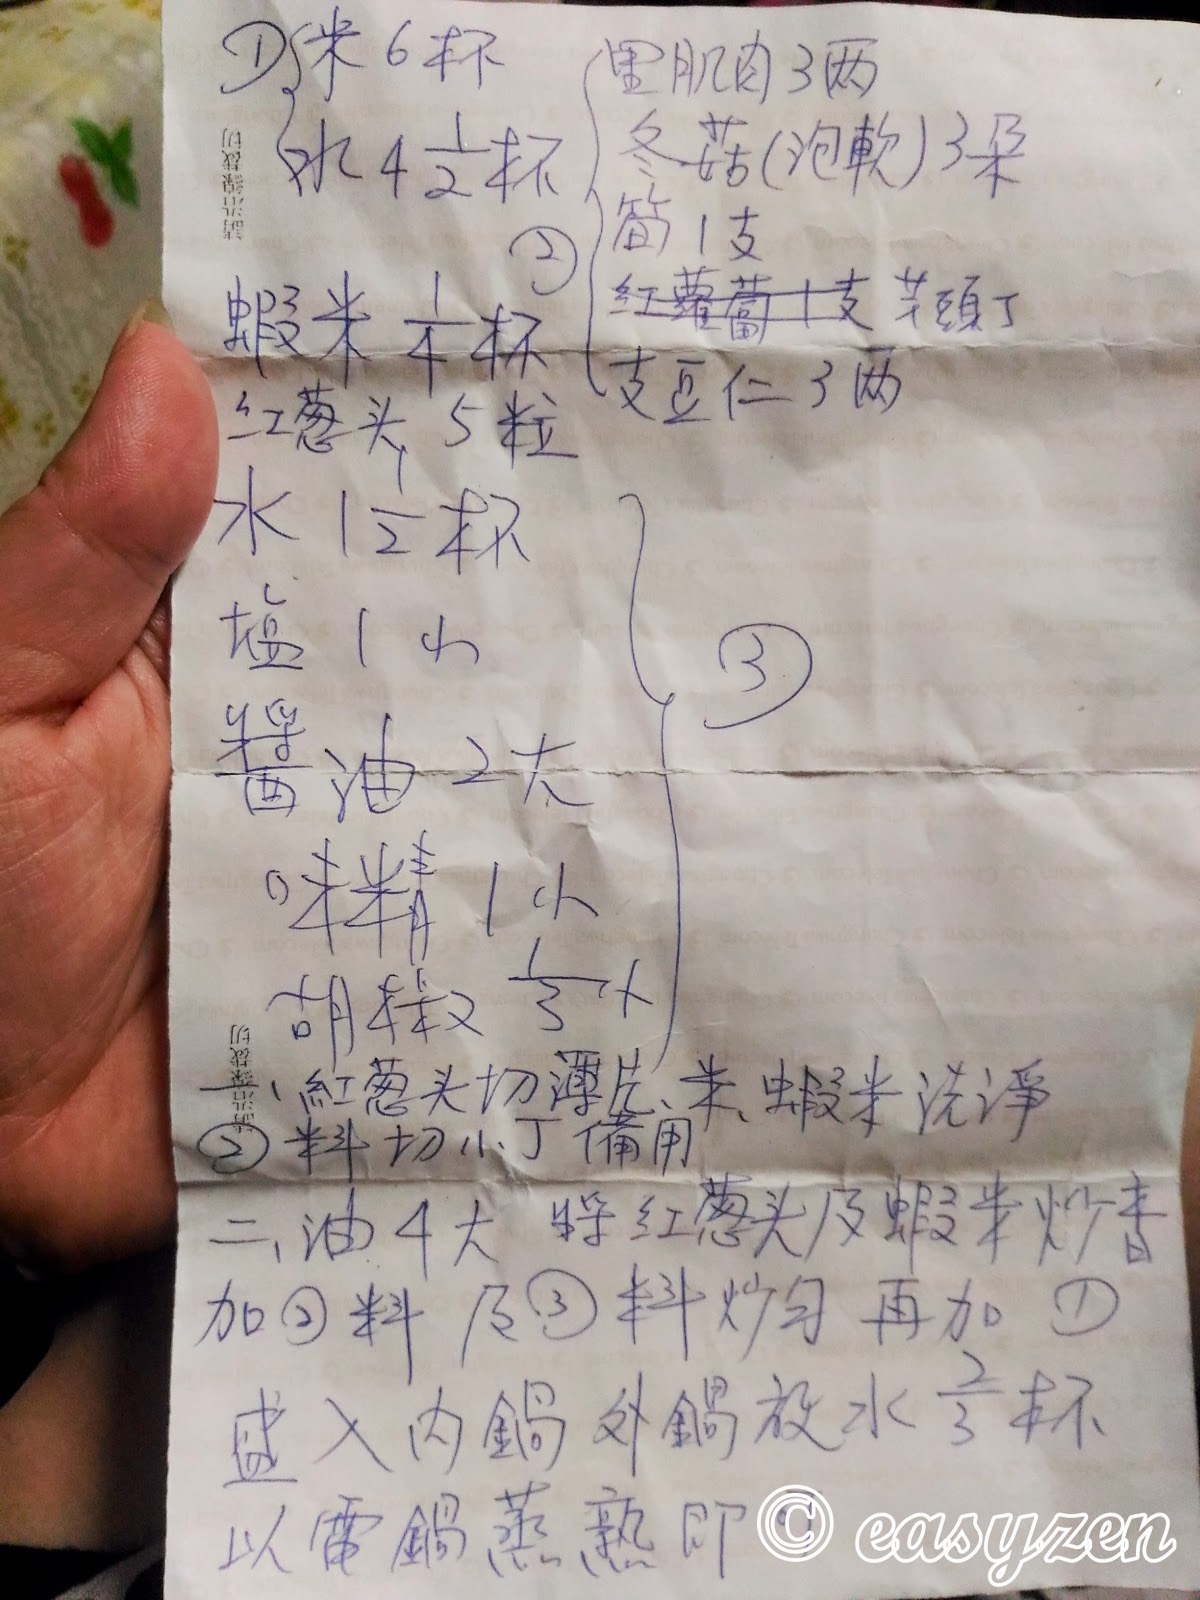 ① 米 6 杯
水 4 1/2 杯
② 里肌肉 3 两
冬菇(泡軟) 3 朵
筍 1 支
红蘿蔔 1 支 芋頭丁
支豆仁 3 两
蝦米 1/4 杯
紅葱头 5 粒
水 1 1/2 杯
塩 1 小
醬油 2 大
味精 1 小
胡椒 1/3 小
③
一、紅葱头切薄片、米、蝦米洗淨
② 料切小丁備用
二、油 4 大 将紅葱头及蝦米炒香
加②料及③料炒匀再加①
盛入内鍋外鍋放水 2/3 杯
以電鍋蒸熟即可
請沿線裁切
請沿線裁切
© easyzen